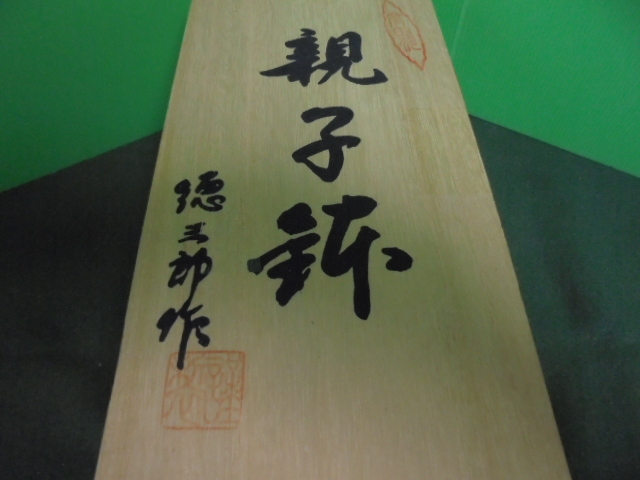 親子鉢
徳三郎作